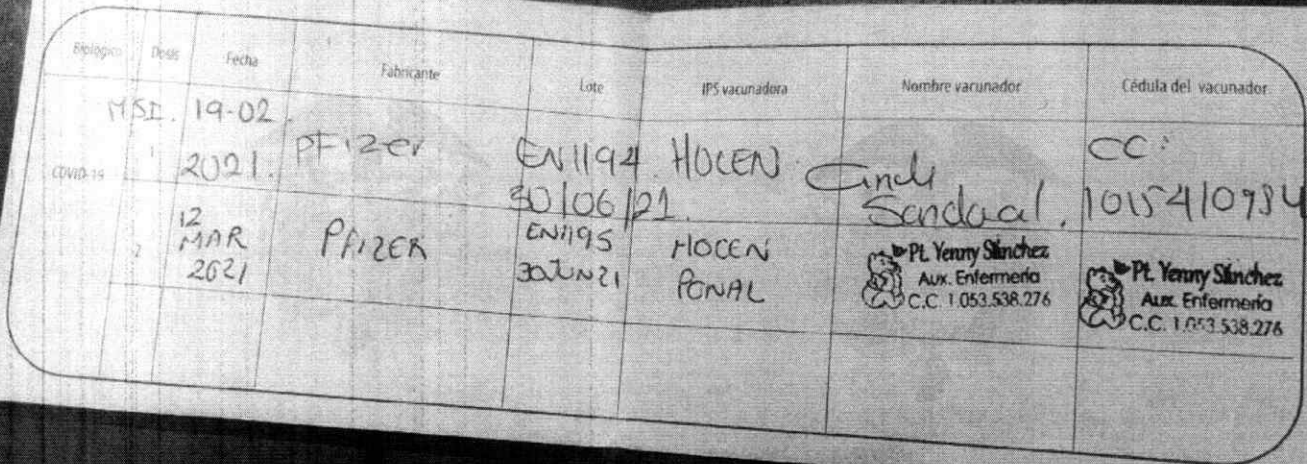 Biológico Dosis Fecha Fabricante Lote IPS vacunadora Nombre vacunador Cédula del vacunador
19-02
2021. PFizer EN1194 HOCEN CC:
COVID-19 1
30/06/21. 1015410934
12 MAR 2021
2 PFIZER EN1195 HOCEN
30JUN21 PONAL
Pt. Yenny Sánchez
Aux. Enfermería
C.C. 1.053.538.276
Pt. Yenny Sánchez
Aux. Enfermería
C.C. 1.053.538.276